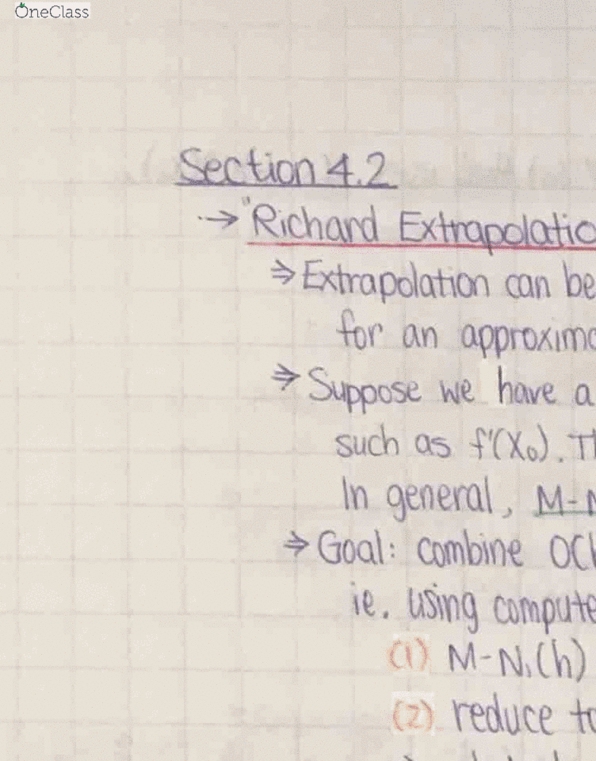 OneClass
Section 4.2
→ "Richard Extrapolatio
⇒ Extrapolation can be
for an approxima
⇒ Suppose we have a
such as f'(x₀). Th
In general, M-N
⇒ Goal: combine O(h
ie. using compute
(1) M-N₁(h)
(2) reduce to